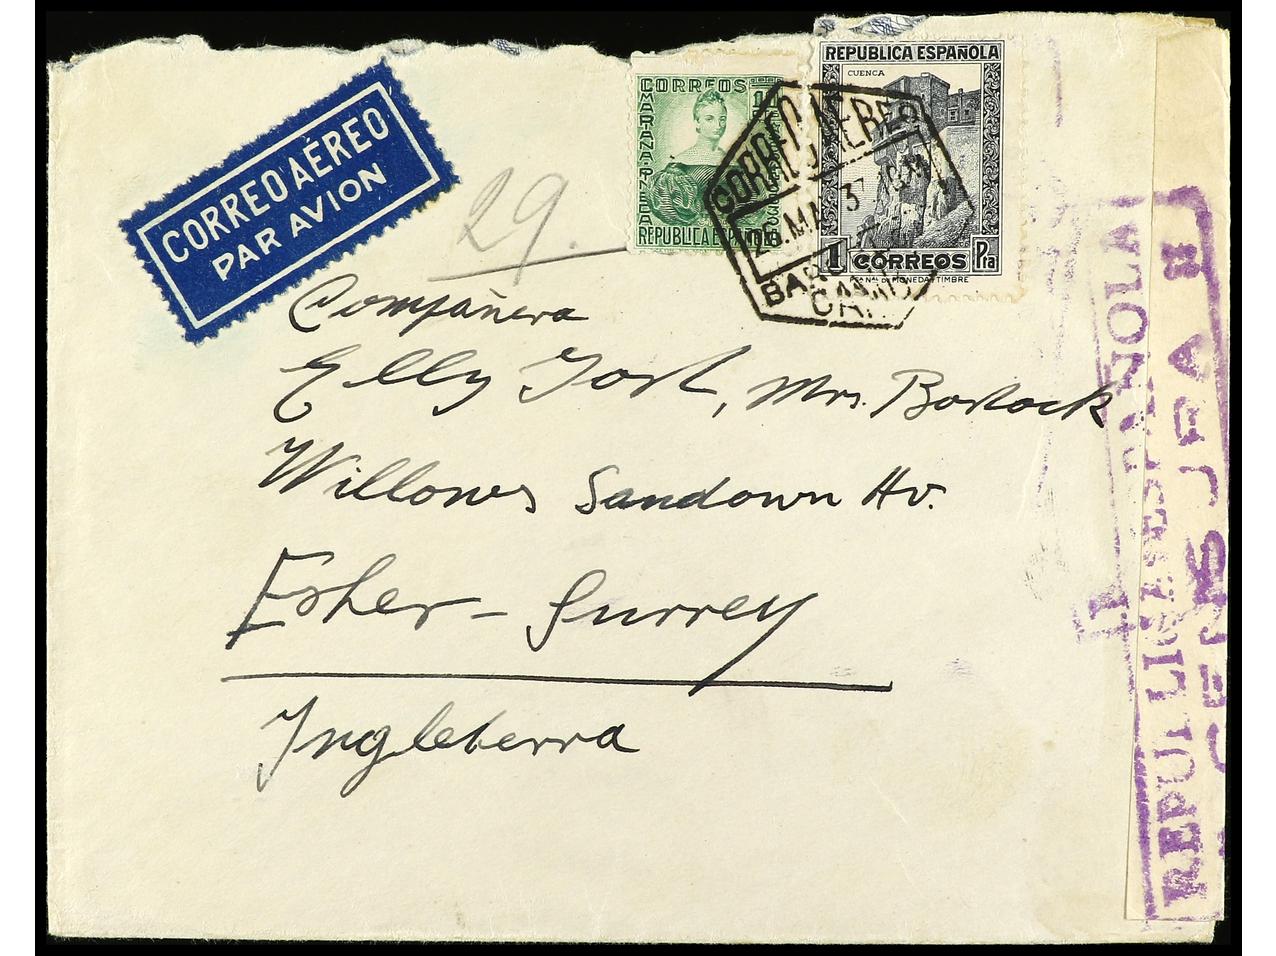 CORREO AÉREO
PAR AVION
CORREOS
MARIANA PINEDA
REPUBLICA ESPAÑOLA
REPUBLICA ESPAÑOLA
CUENCA
1 CORREOS Pta
CORREO AEREO
26.MAR 37
29.
Compañera
Elly Jost, Mrs. Bostock
Willows Sandown Av.
Esher - Surrey
Ingleterra
REPUBLICA ESPAÑOLA
CENSURA